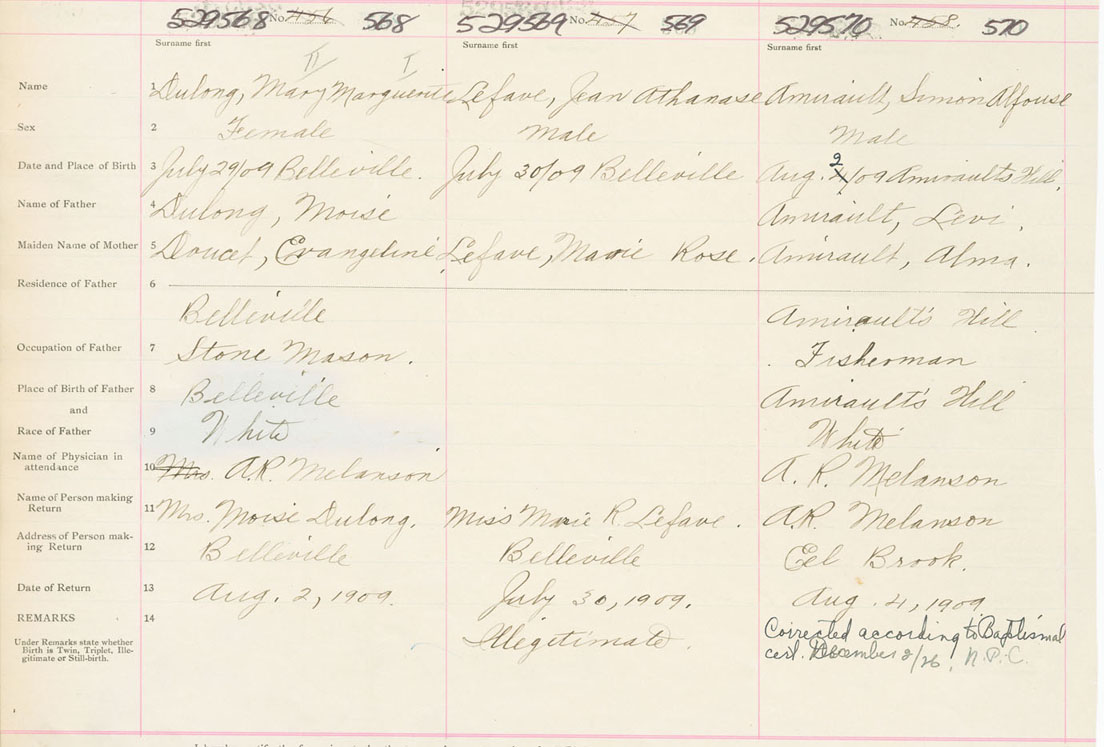 529568 No. 426 568 529569 No. 457 569 529570 No. 458. 570
Surname first Surname first Surname first
II I
Name 1 Dulong, Mary Marguerite Lefave, Jean Athanase Amirault, Simon Alfouse
Sex 2 Female Male Male
Date and Place of Birth 3 July 29/09 Belleville. July 30/09 Belleville Aug. 2 4/09 Amirault's Hill.
Name of Father 4 Dulong, Moise Amirault, Levi.
Maiden Name of Mother 5 Doucet, Evangeline Lefave, Marie Rose. Amirault, Alma.
Residence of Father 6
Belleville Amirault's Hill
Occupation of Father 7 Stone Mason. Fisherman
Place of Birth of Father 8 Belleville Amirault's Hill
and
Race of Father 9 White White
Name of Physician in
attendance 10 Mrs. A.R. Melanson A. R. Melanson
Name of Person making
Return 11 Mrs. Moise Dulong. Miss Marie R. Lefave. A.R. Melanson
Address of Person mak-
ing Return 12 Belleville Belleville Eel Brook.
Date of Return 13 Aug. 2, 1909. July 30, 1909. Aug. 4, 1909
REMARKS 14
Under Remarks state whether
Birth is Twin, Triplet, Ille-
gitimate or Still-birth.
Illegitimate.
Corrected according to Baptismal
cert. December 2/26. N.P.C.